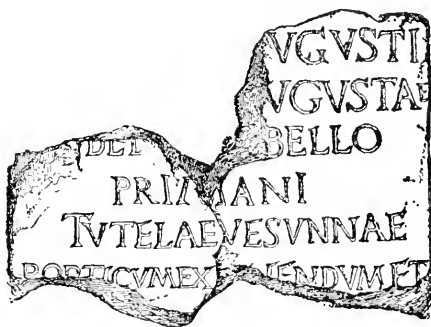 VGVSTI
VGVSTAE
BELLO
PRIMANI
TVTELAE VESVNNAE
PORTICVM EX ENDVM ET